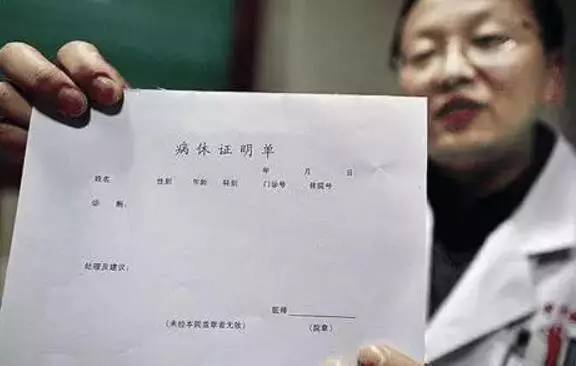 病休证明单
年 月 日
姓名 性别 年龄 科别 门诊号 住院号
诊 断:
处理及建议:
医师
(未经本院盖章者无效) (院章)